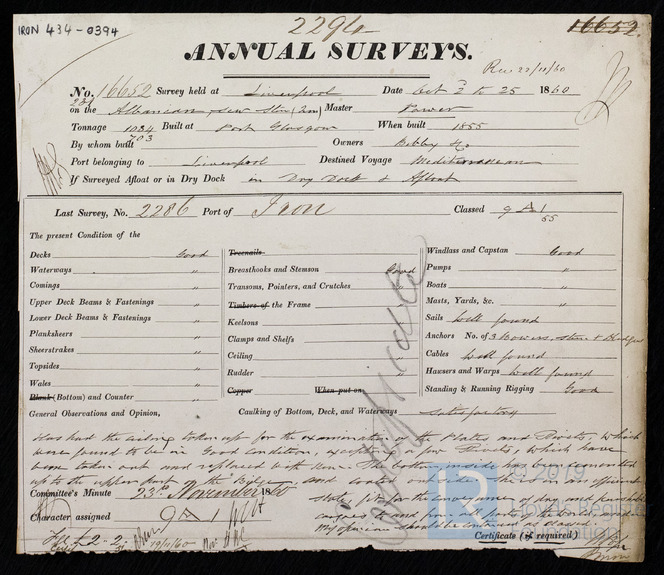 IRON 434-0394
2294
16652
ANNUAL SURVEYS.
Rec 22/11/60
No. 16652 Survey held at Liverpool Date Oct 2 to 25 1860
on the Albanian, Scw Stmr (Iron) Master Power
Tonnage 1034 Built at Port Glasgow When built 1855
703
By whom built Owners Bibby & Co
Port belonging to Liverpool Destined Voyage Mediterranean
If Surveyed Afloat or in Dry Dock in Dry Dock & Afloat
Last Survey, No. 2286 Port of Iron Classed 9 A 1
55
The present Condition of the
Decks Good
Waterways "
Comings "
Upper Deck Beams & Fastenings "
Lower Deck Beams & Fastenings "
Planksheers "
Sheerstrakes "
Topsides "
Wales "
Plank (Bottom) and Counter "
Treenails
Breasthooks and Stemson Good
Transoms, Pointers, and Crutches "
Timbers of the Frame "
Keelsons "
Clamps and Shelfs "
Ceiling "
Rudder "
Copper When put on
Windlass and Capstan Good
Pumps "
Boats "
Masts, Yards, &c. "
Sails Well found
Anchors No. of 3 Bowers, Stream & Kedges
Cables Well found
Hawsers and Warps Well found
Standing & Running Rigging Good
General Observations and Opinion, Caulking of Bottom, Deck, and Waterways Satisfactory
Certificate
Has had the ceiling taken up for the examination of the Plates and Rivets, which
were found to be in Good condition, excepting a few Rivets, which have
been taken out and replaced with new. The bottom inside has been cemented
up to the upper part of the Bilge, and coated outside. She is in an efficient
state, fit for the conveyance of dry and perishable
cargoes to and from all parts of the world and in
my opinion should be continued as classed.
Committee's Minute 23rd November 1860
Character assigned 9 A 1
19/11/60
Certificate (if required)
© 2019
Lloyds Register
Foundation